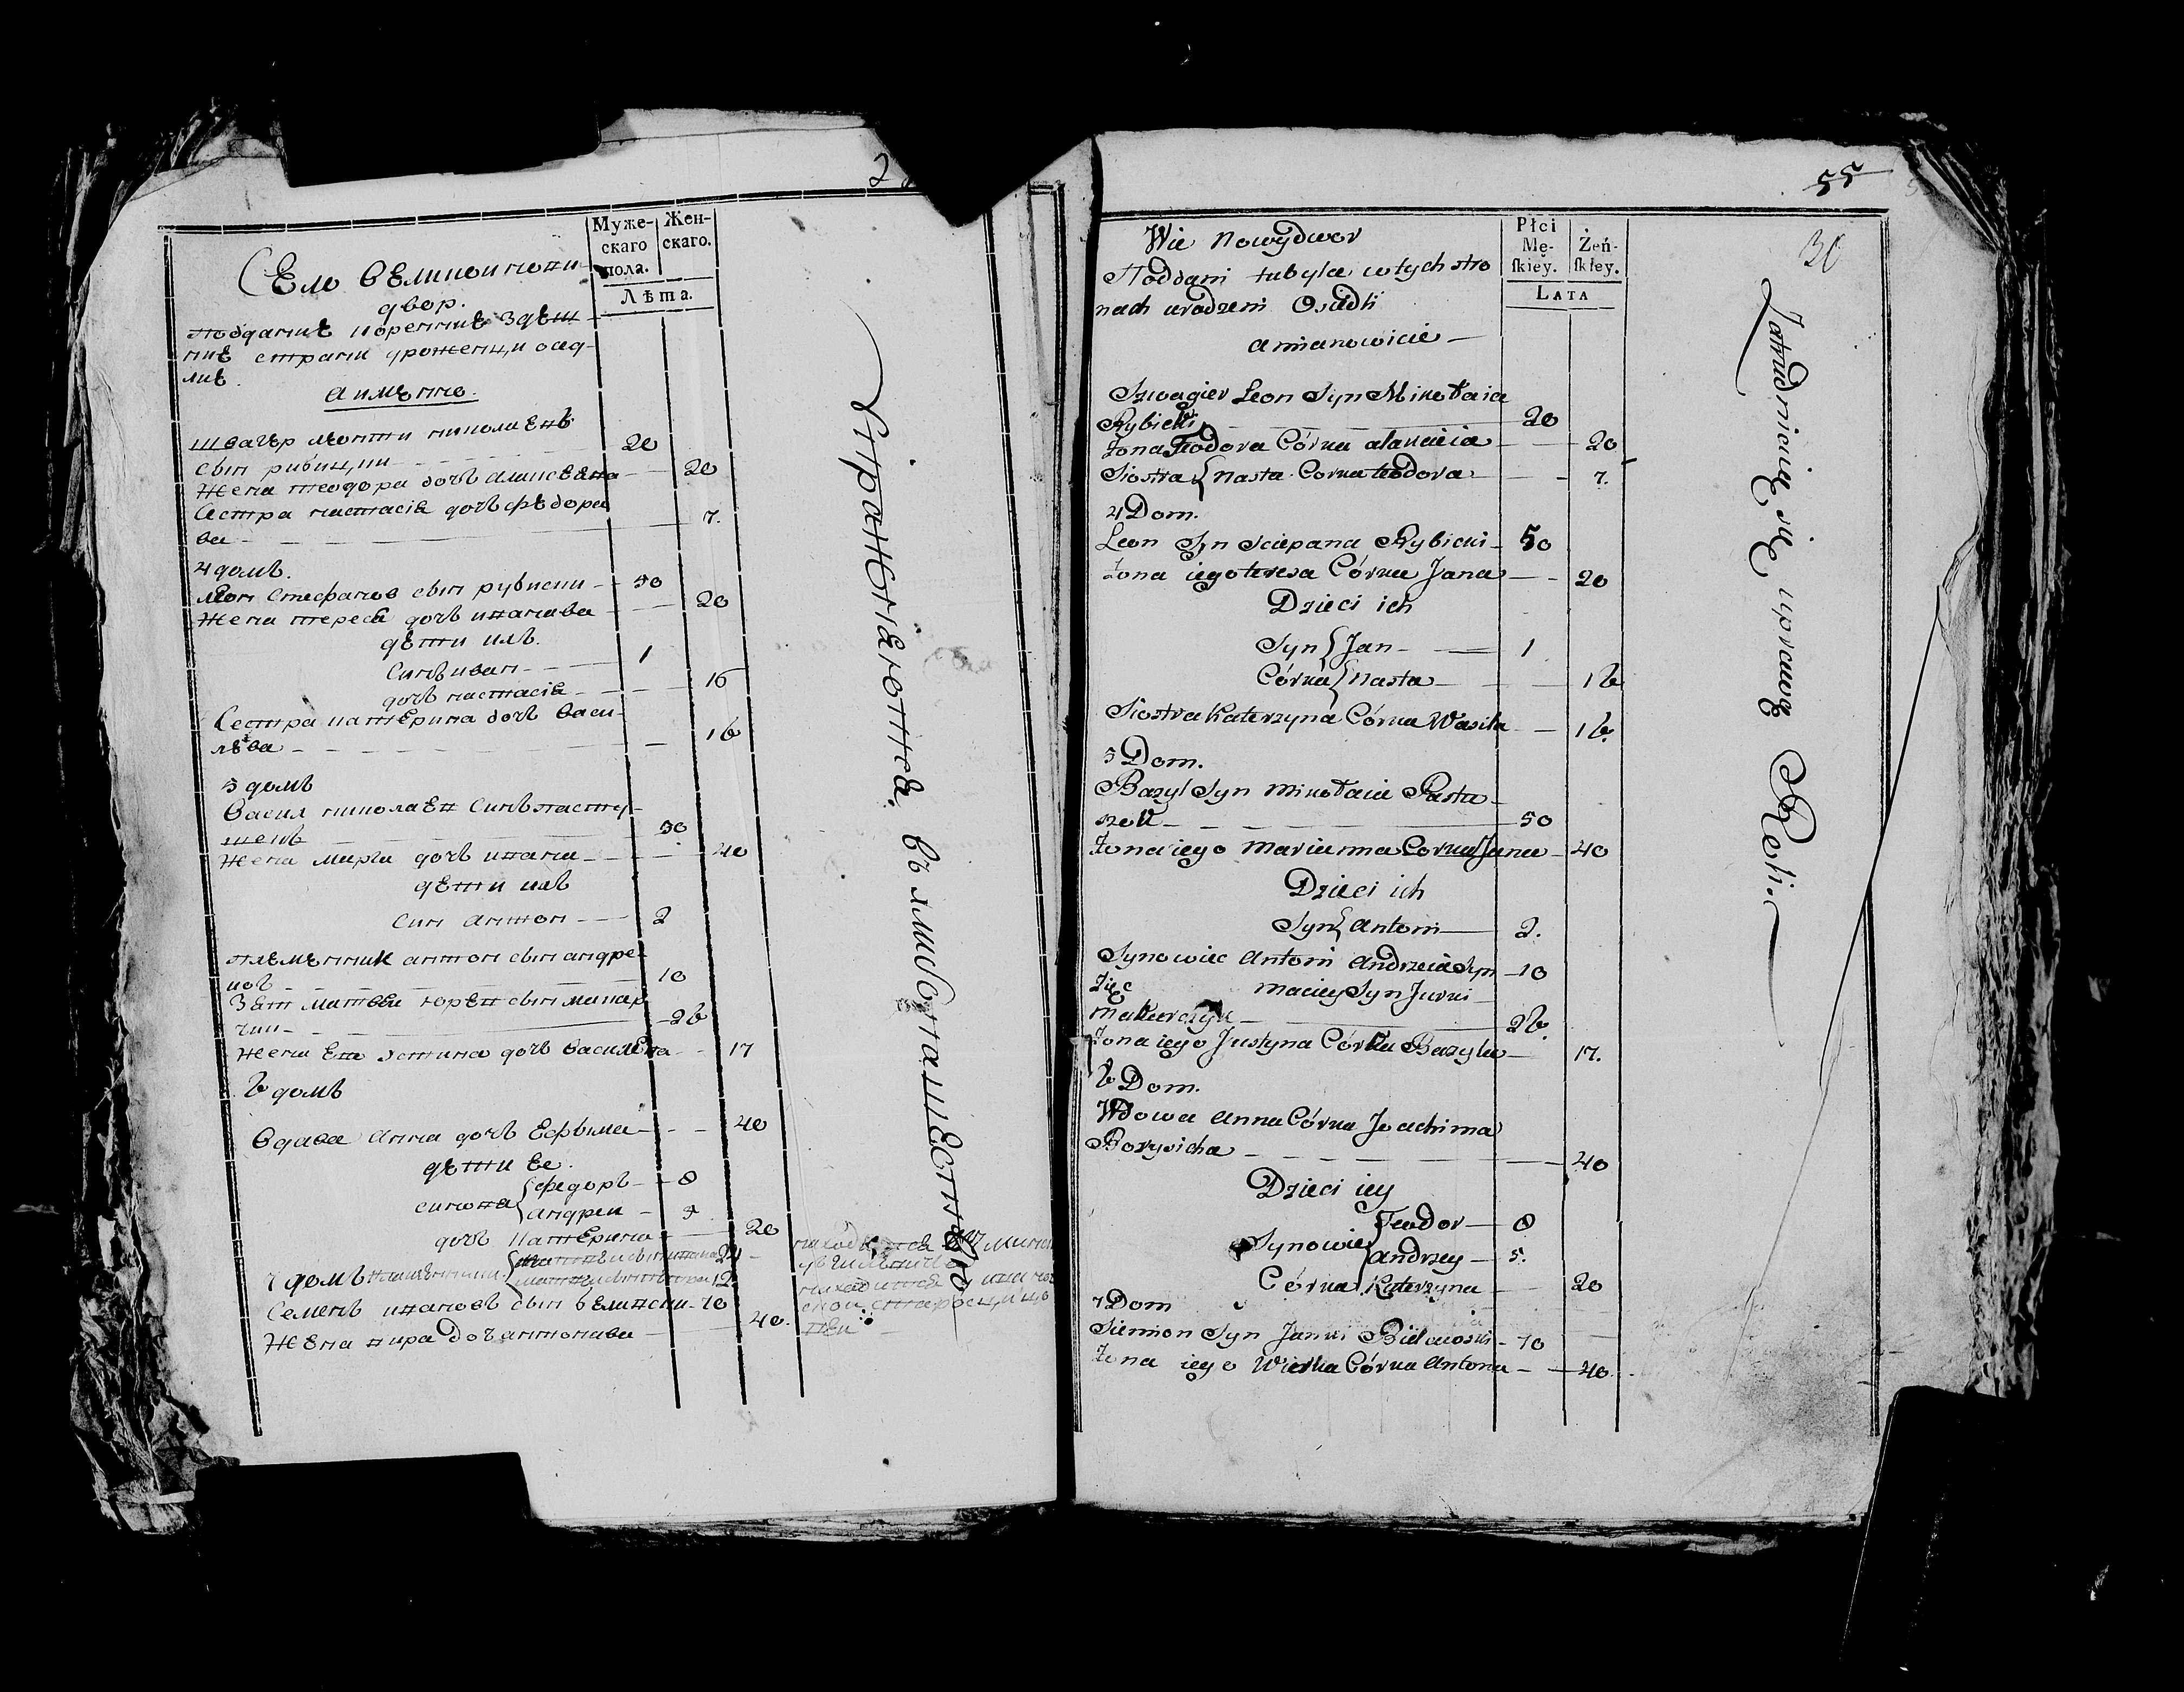 Муже-
скаго
пола.
Жен-
скаго.
Лѣта.
Село
двор.
подание коренние здеш
ние страни уроженци осед-
лие.
а имѣнно.
швагер леонти николаевъ
син рибицки 20
жена теодора дочь алисеева 20
Сестра настасія дочь федоро
ва 7.
4 домъ.
леон стефанов син рубиски 50
жена тереса дочь иванава 20
дети ихъ.
синъ иван 1
дочь настасія 16
Сестра катерина дочь васи-
лѣва 16
5 домъ
Василь николаев синъ пасту-
шекъ 50
жена марга дочь ивана 40
дети ихъ
син антон 2
племѣнник антон син андре-
иов 10
Зет матвеи юрев син макар
чик 26
жена ево устина дочь василева 17
6 домъ
Вдава анна дочь Ефьима 40
дети ее.
синова федоръ 8
андреи 5
дочь катерина 20
7 домъ
Семенъ ивановъ син белински 70
жена вира дочь антонава 40.
Упражняются в хлебопашестве
55
30
Płci
Mę-
skiey.
Żeń-
skiey.
LATA
Wie Nowydwor
Poddani tubylce w tych stro
nach urodzeni Osiedli
a mianowicie
Szwagier Leon Syn Mikołaia
Rybicki 20
Żona Teodora Córka 20
Siostra Nasta Corka teodora 7.
4 Dom.
Leon Syn Sciepana Rybicki 50
Żona iego teresa Córka Jana 20
Dzieci ich
Syn Jan 1
Córka Nasta 16
Siostra Katerzyna Córka Wasila 16.
5 Dom.
Bazyl Syn Mikołaia Pastu
szek 50
Żona iego Marianna Corka Jana 40
Dzieci ich
Syn Antoni 2.
Synowiec Antoni Andrzeia Syn 10
Zięc Maciey Syn Jurki
Makarczyk 26.
Żona iego Justyna Córka Bazyla 17.
6 Dom.
Wdowa Anna Córka Joachima
Borysicha 40
Dzieci iey
Synowie Teodor 8
Andrzey 5.
Córka Katerzyna 20
7 Dom
Siemion Syn Janki Bielawski 70
Żona iego Wierka Córka Antona 40.
Zatrudniaią się uprawą Roli.